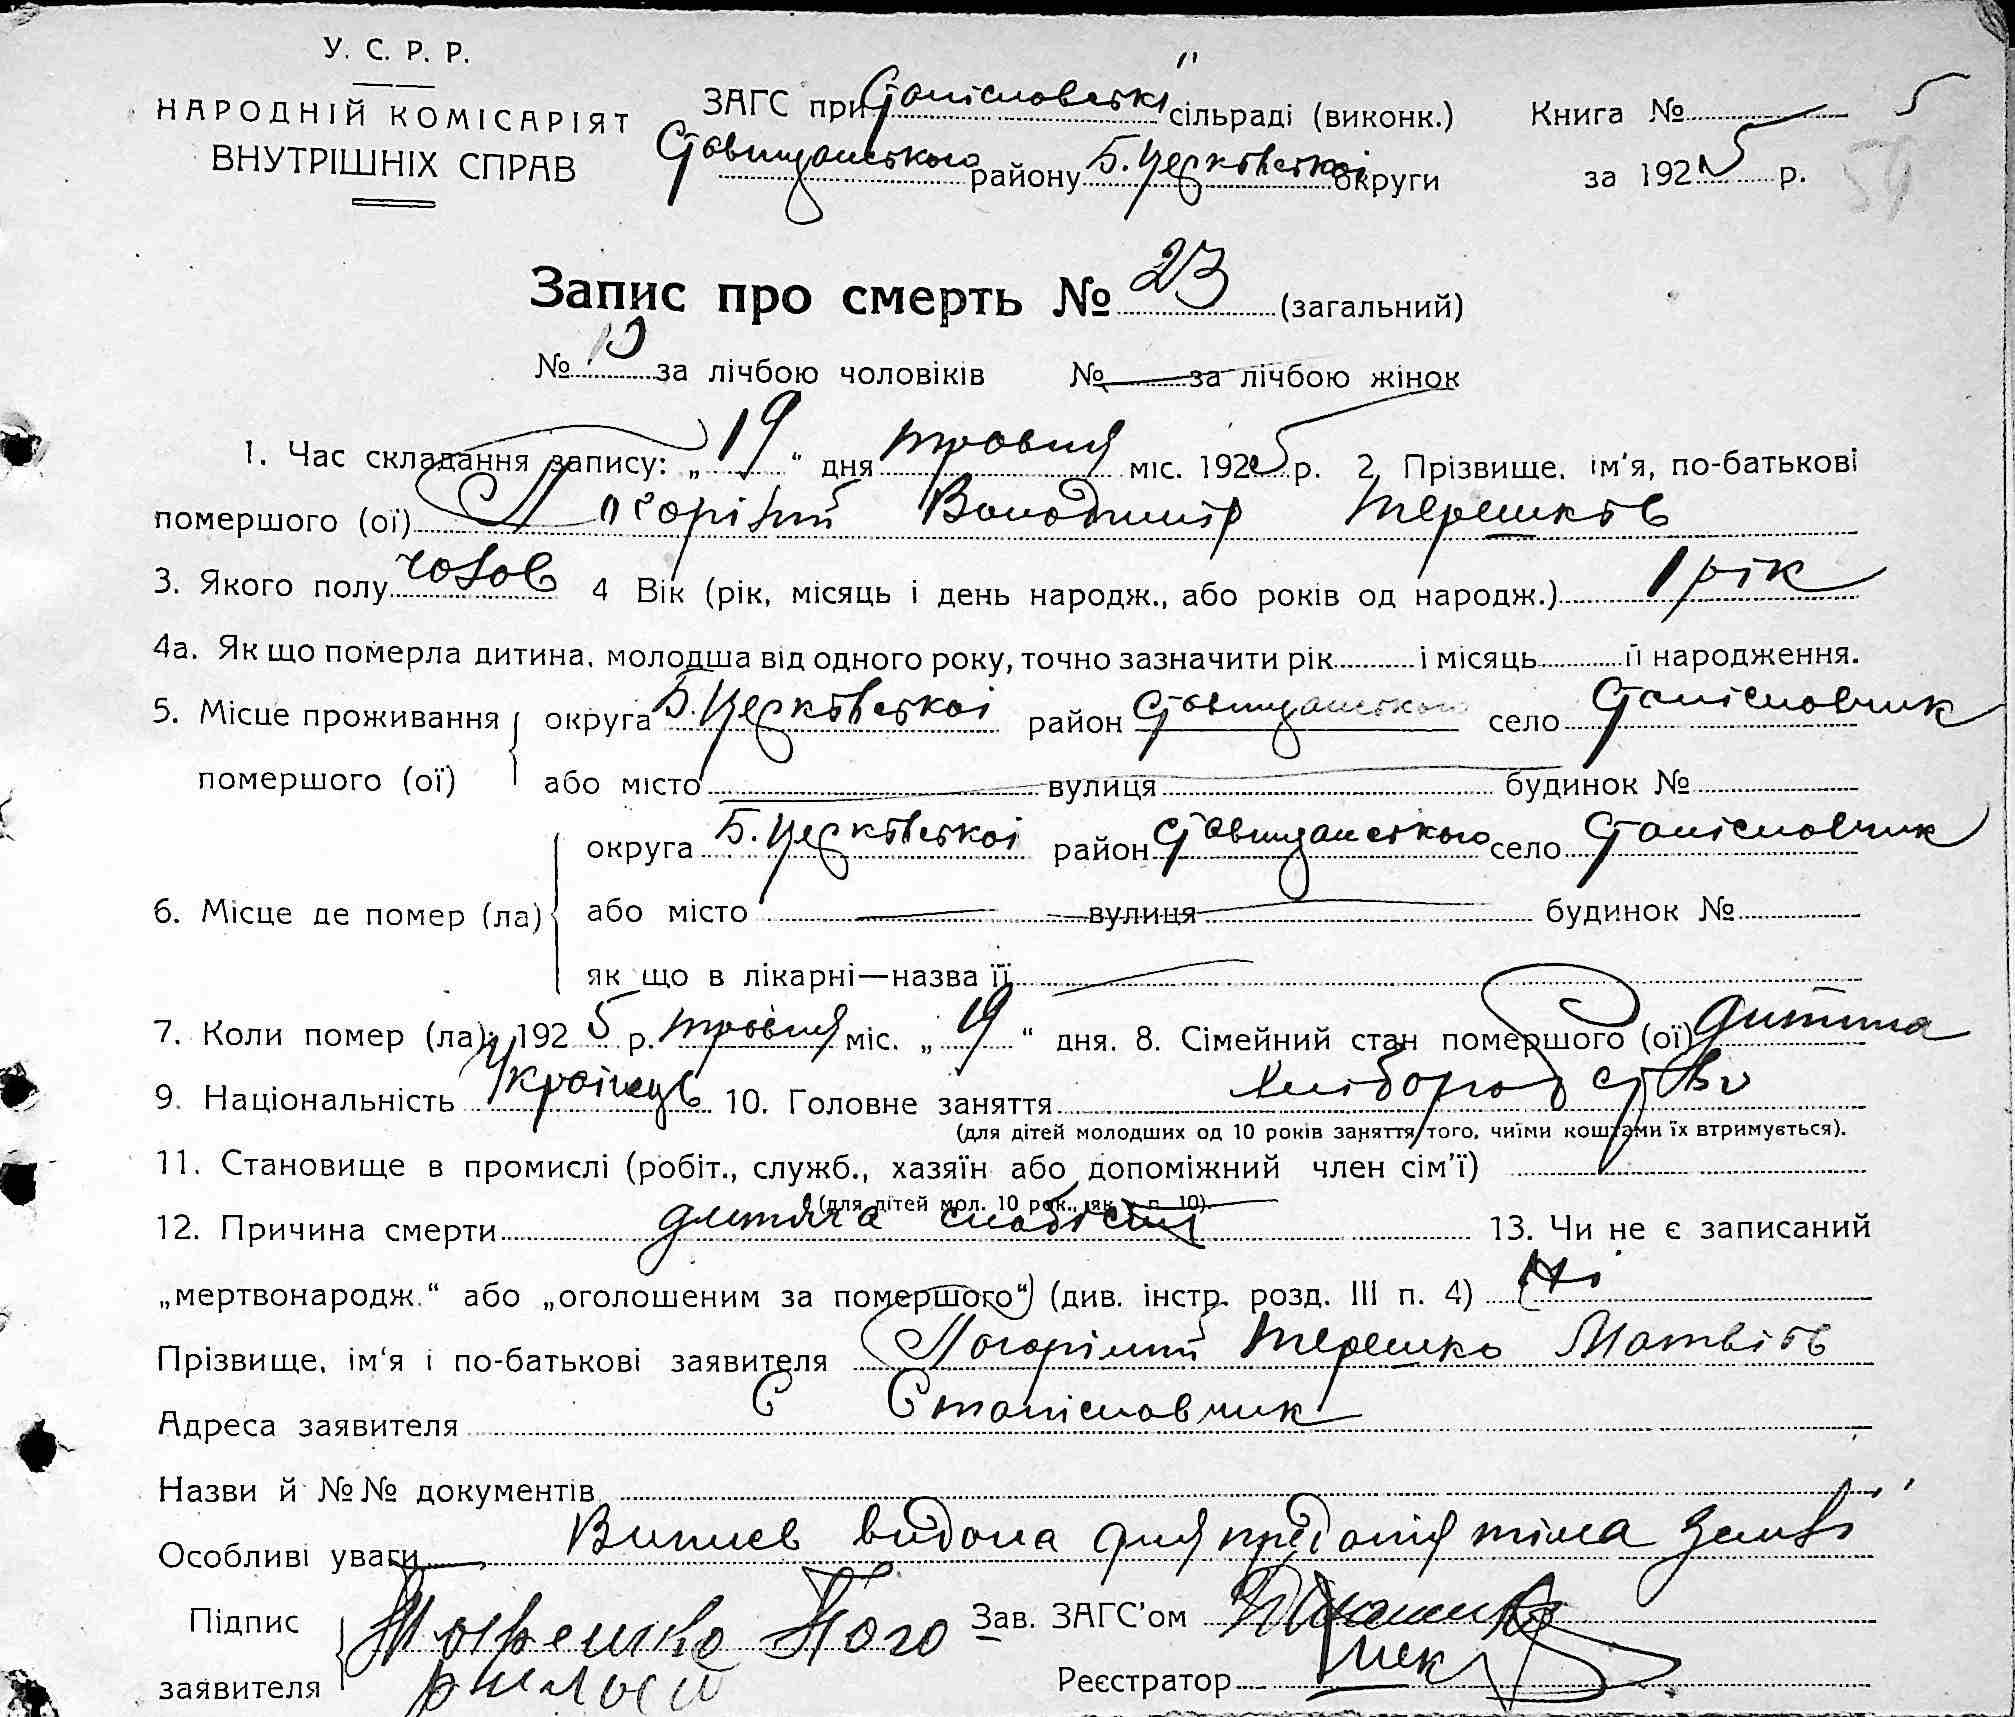 У. С. Р. Р.
НАРОДНІЙ КОМІСАРІЯТ
ВНУТРІШНІХ СПРАВ
ЗАГС при Станіславській сільраді (виконк.)
Ставищанського району Б. Церківської округи
Книга № 5
за 1925 р.
59
Запис про смерть № 23 (загальний)
№ 13 за лічбою чоловіків № — за лічбою жінок
1. Час складання запису: „19“ дня травня міс. 1925 р. 2. Прізвище, ім'я, по-батькові
помершого (ої) Погорілий Володимир Терешків
3. Якого полу чолов 4 Вік (рік, місяць і день народж., або років од народж.) 1 рік
4а. Як що померла дитина, молодша від одного року, точно зазначити рік і місяць її народження.
5. Місце проживання округа Б. Церківської район Ставищанського село Станіславчик
помершого (ої) або місто — вулиця — будинок №
6. Місце де помер (ла) округа Б. Церківської район Ставищанського село Станіславчик
або місто — вулиця — будинок №
як що в лікарні—назва її —
7. Коли помер (ла): 1925 р. травня міс. „19“ дня. 8. Сімейний стан помершого (ої) дитина
9. Національність Українець 10. Головне заняття Хліборобство
(для дітей молодших од 10 років заняття того, чиїми коштами їх втримується).
11. Становище в промислі (робіт., служб., хазяїн або допоміжний член сім'ї)
(для дітей мол. 10 рок., як п. 10).
12. Причина смерти дитяча слабість 13. Чи не є записаний
„мертвонародж.“ або „оголошеним за помершого“) (див. інстр. розд. III п. 4) Ні
Прізвище, ім'я і по-батькові заявителя Погорілий Терешко Матвіїв
Адреса заявителя С Станіславчик
Назви й №№ документів
Особливі уваги Випись видана для предания тіла землі
Підпис Терешко Пого Зав. ЗАГС'ом
заявителя рилый Реєстратор